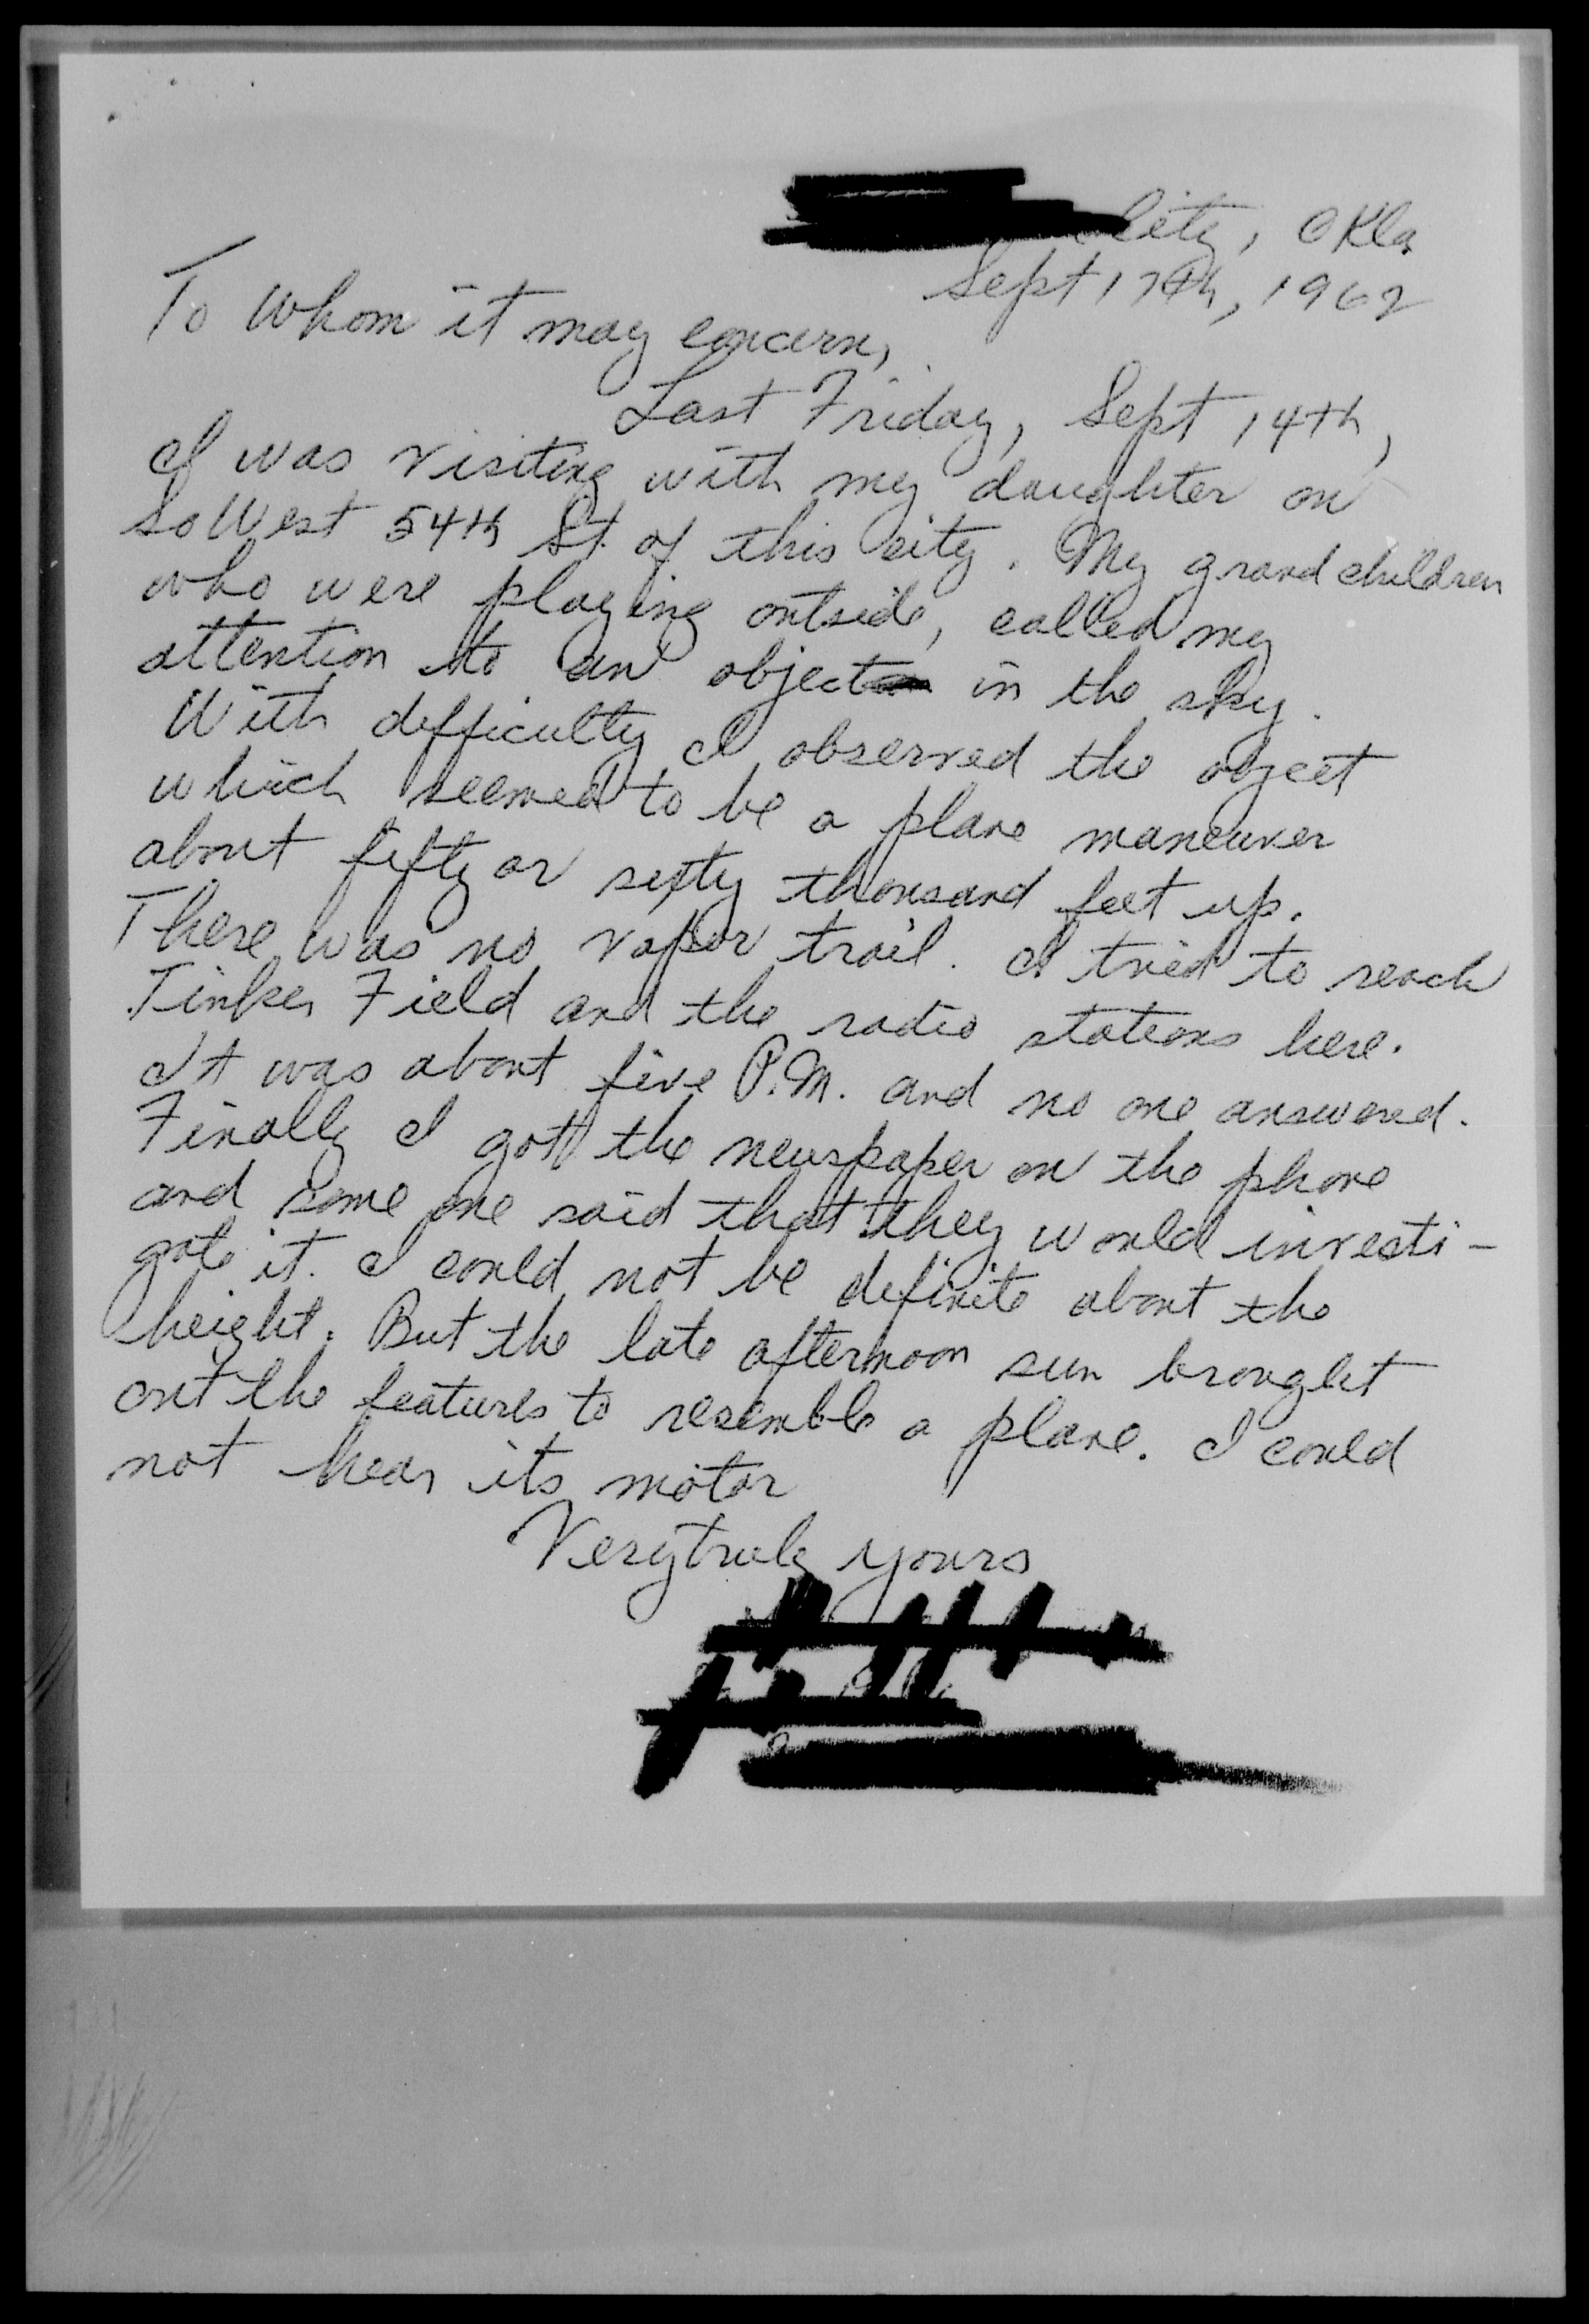 City, Okla
Sept 17th, 1962
To Whom it may concern,
Last Friday, Sept 14th,
I was visiting with my daughter on
So West 54th St. of this city. My grand children
who were playing outside, called my
attention to an object in the sky.
With difficulty I observed the object
which seemed to be a plane maneuver
about fifty or sixty thousand feet up.
There was no vapor trail. I tried to reach
Tinker Field and the radio stations here.
It was about five P.M. and no one answered.
Finally I got the newspaper on the phone
and some one said that they would investi-
gate it. I could not be definite about the
height. But the late afternoon sun brought
out the features to resemble a plane. I could
not hear its motor
Very truly yours